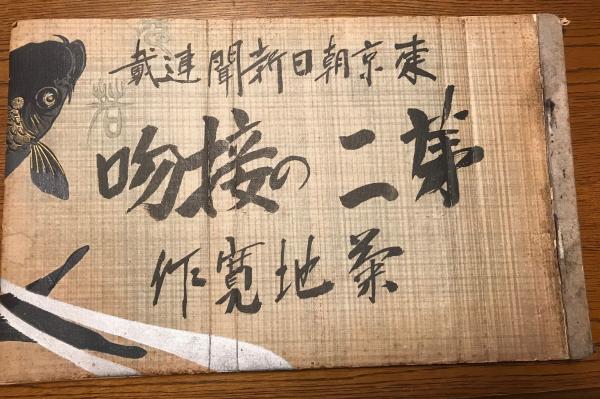 東京朝日新聞連載
第二の接吻
菊地寛作